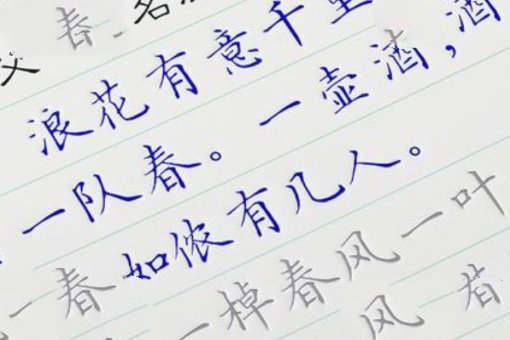 春 名
浪花有意千
一队春。一壶酒,酒
一春如侬有几人。
一棹春风一叶
风